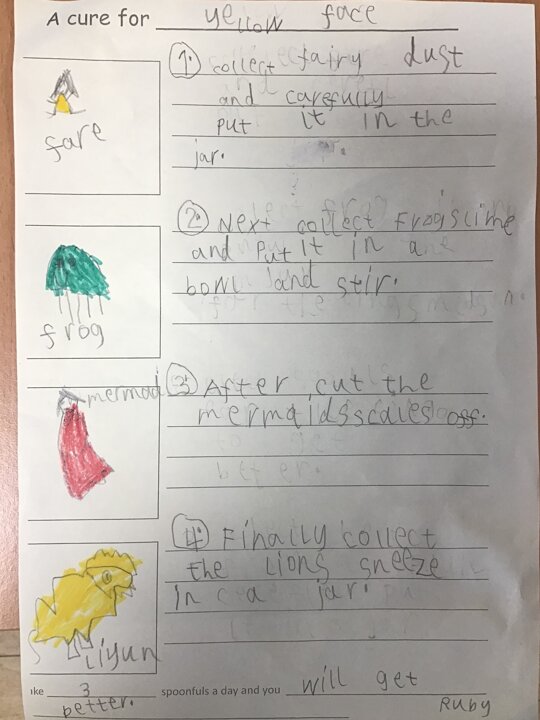 A cure for yellow face
fare
1. collect fairy dust
and carefully
put it in the
jar.
frog
2. Next collect Frog slime
and put it in a
bowl and stir.
mermad
3. After cut the
mermaids scales off.
S Liyun
4. Finally collect
the Lions sneeze
in a jar.
ke 3 spoonfuls a day and you will get
better.
Ruby